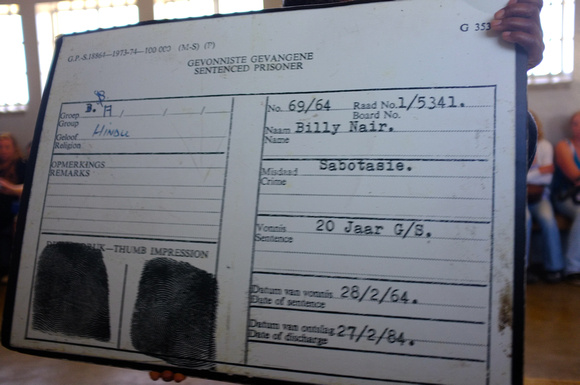 G.P.-S.18864—1973-74—100 000 (M-S) (7)
G 353
GEVONNISTE GEVANGENE
SENTENCED PRISONER
B
Groep B. A
Group
Geloof HINDU
Religion
OPMERKINGS
REMARKS
DUIMAFDRUK—THUMB IMPRESSION
No. 69/64 Raad No. 1/5341.
Board No.
Naam Billy Nair.
Name
Misdaad Sabotasie.
Crime
Vonnis 20 Jaar G/S.
Sentence
Datum van vonnis 28/2/64.
Date of sentence
Datum van ontslag 27/2/84.
Date of discharge